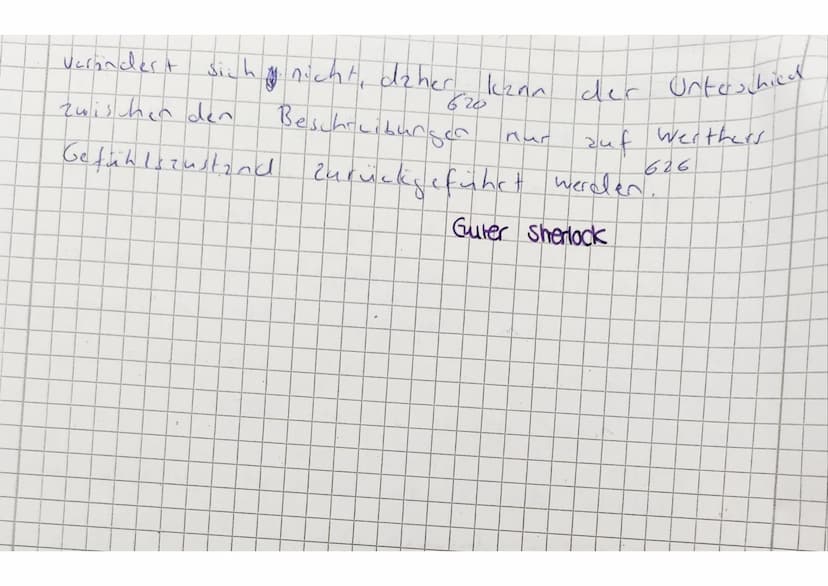 verändert sich nicht, daher kann der Unterschied
620
zwischen den Beschreibungen nur auf Werthers
Gefühlszustand zurückgeführt werden.
626
Guter Sherlock